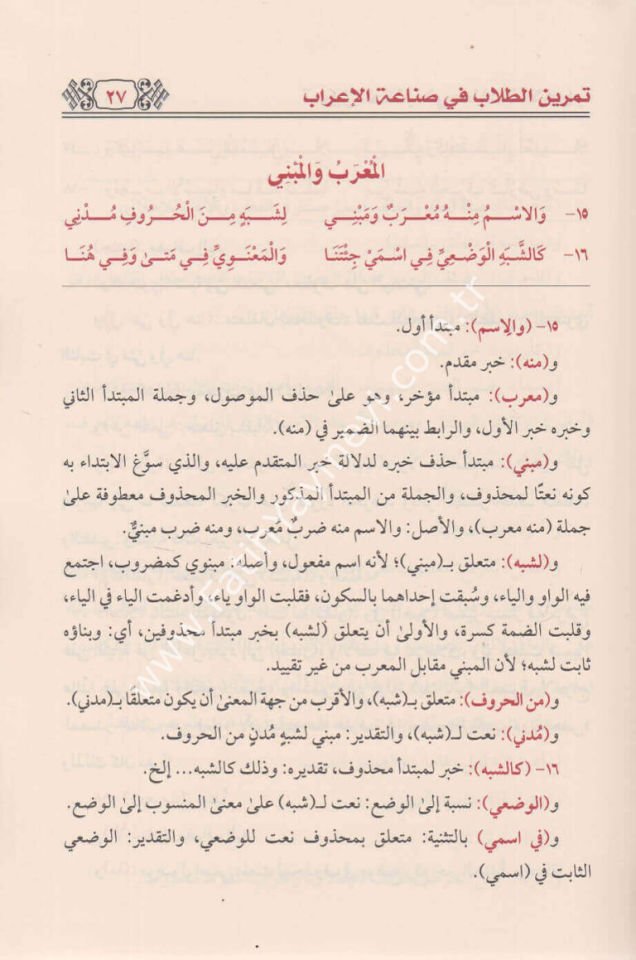 تمرين الطلاب في صناعة الإعراب
٢٧
المُعْرَبُ وَالمَبْنِي
١٥- وَالاسْمُ مِنْهُ مُعْرَبٌ وَمَبْنِي لِشَبَهٍ مِنَ الْحُرُوفِ مُدْنِي
١٦- كَالشَّبَهِ الْوَضْعِيِّ فِي اسْمَيْ جِئْتَنَا وَالْمَعْنَوِيِّ فِي مَتَىٰ وَفِي هُنَا
١٥- (والاِسم): مبتدأ أول.
و(منه): خبر مقدم.
و(معرب): مبتدأ مؤخر، وهو علىٰ حذف الموصول، وجملة المبتدأ الثاني
وخبره خبر الأول، والرابط بينهما الضمير في (منه).
و(مبني): مبتدأ حذف خبره لدلالة خبر المتقدم عليه، والذي سوَّغ الابتداء به
كونه نعتًا لمحذوف، والجملة من المبتدأ المذكور والخبر المحذوف معطوفة علىٰ
جملة (منه معرب)، والأصل: والاسم منه ضربٌ مُعرب، ومنه ضرب مبنيٌّ.
و(لشبه): متعلق بـ(مبني)؛ لأنه اسم مفعول، وأصله: مبنوي كمضروب، اجتمع
فيه الواو والياء، وسُبقت إحداهما بالسكون، فقلبت الواو ياء، وأدغمت الياء في الياء،
وقلبت الضمة كسرة، والأولىٰ أن يتعلق (لشبه) بخبر مبتدأ محذوفين، أي: وبناؤه
ثابت لشبه؛ لأن المبني مقابل المعرب من غير تقييد.
و(من الحروف): متعلق بـ(شبه)، والأقرب من جهة المعنىٰ أن يكون متعلقًا بـ(مدني).
و(مُدني): نعت لـ(شبه)، والتقدير: مبني لشبهٍ مُدنٍ من الحروف.
١٦- (كالشبه): خبر لمبتدأ محذوف، تقديره: وذلك كالشبه... إلخ.
و(الوضعي): نسبة إلىٰ الوضع: نعت لـ(شبه) علىٰ معنىٰ المنسوب إلىٰ الوضع.
و(في اسمي) بالتثنية: متعلق بمحذوف نعت للوضعي، والتقدير: الوضعي
الثابت في (اسمي).